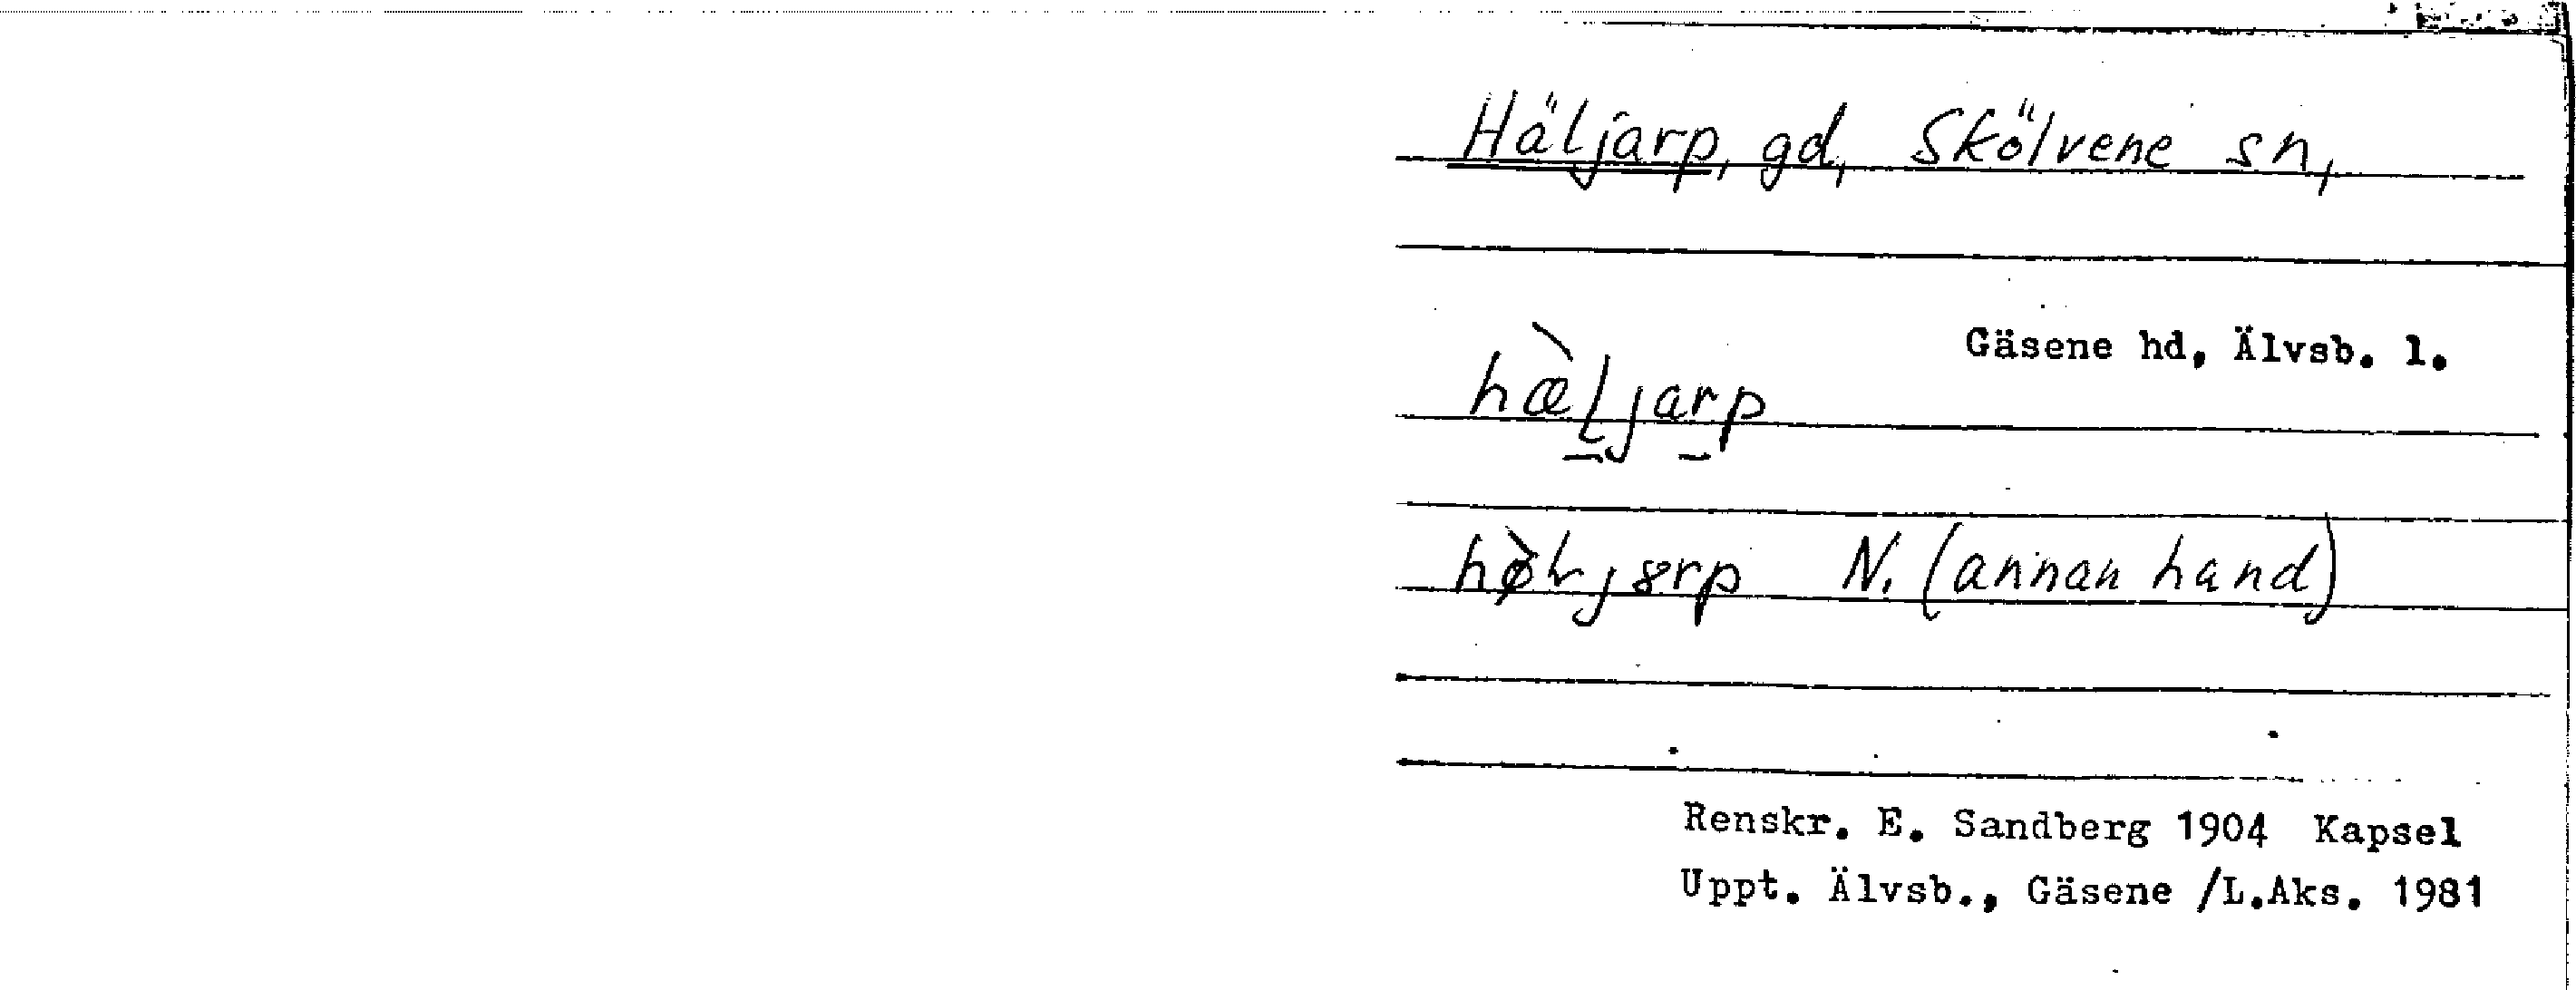 Häljarp, gd, Skölvene sn,
Gäsene hd, Älvsb. l.
hæ̀ljarp
hø̀Ljɞrp N. (annan hand)
Renskr. E. Sandberg 1904 Kapsel
Uppt. Älvsb., Gäsene /L.Aks. 1981